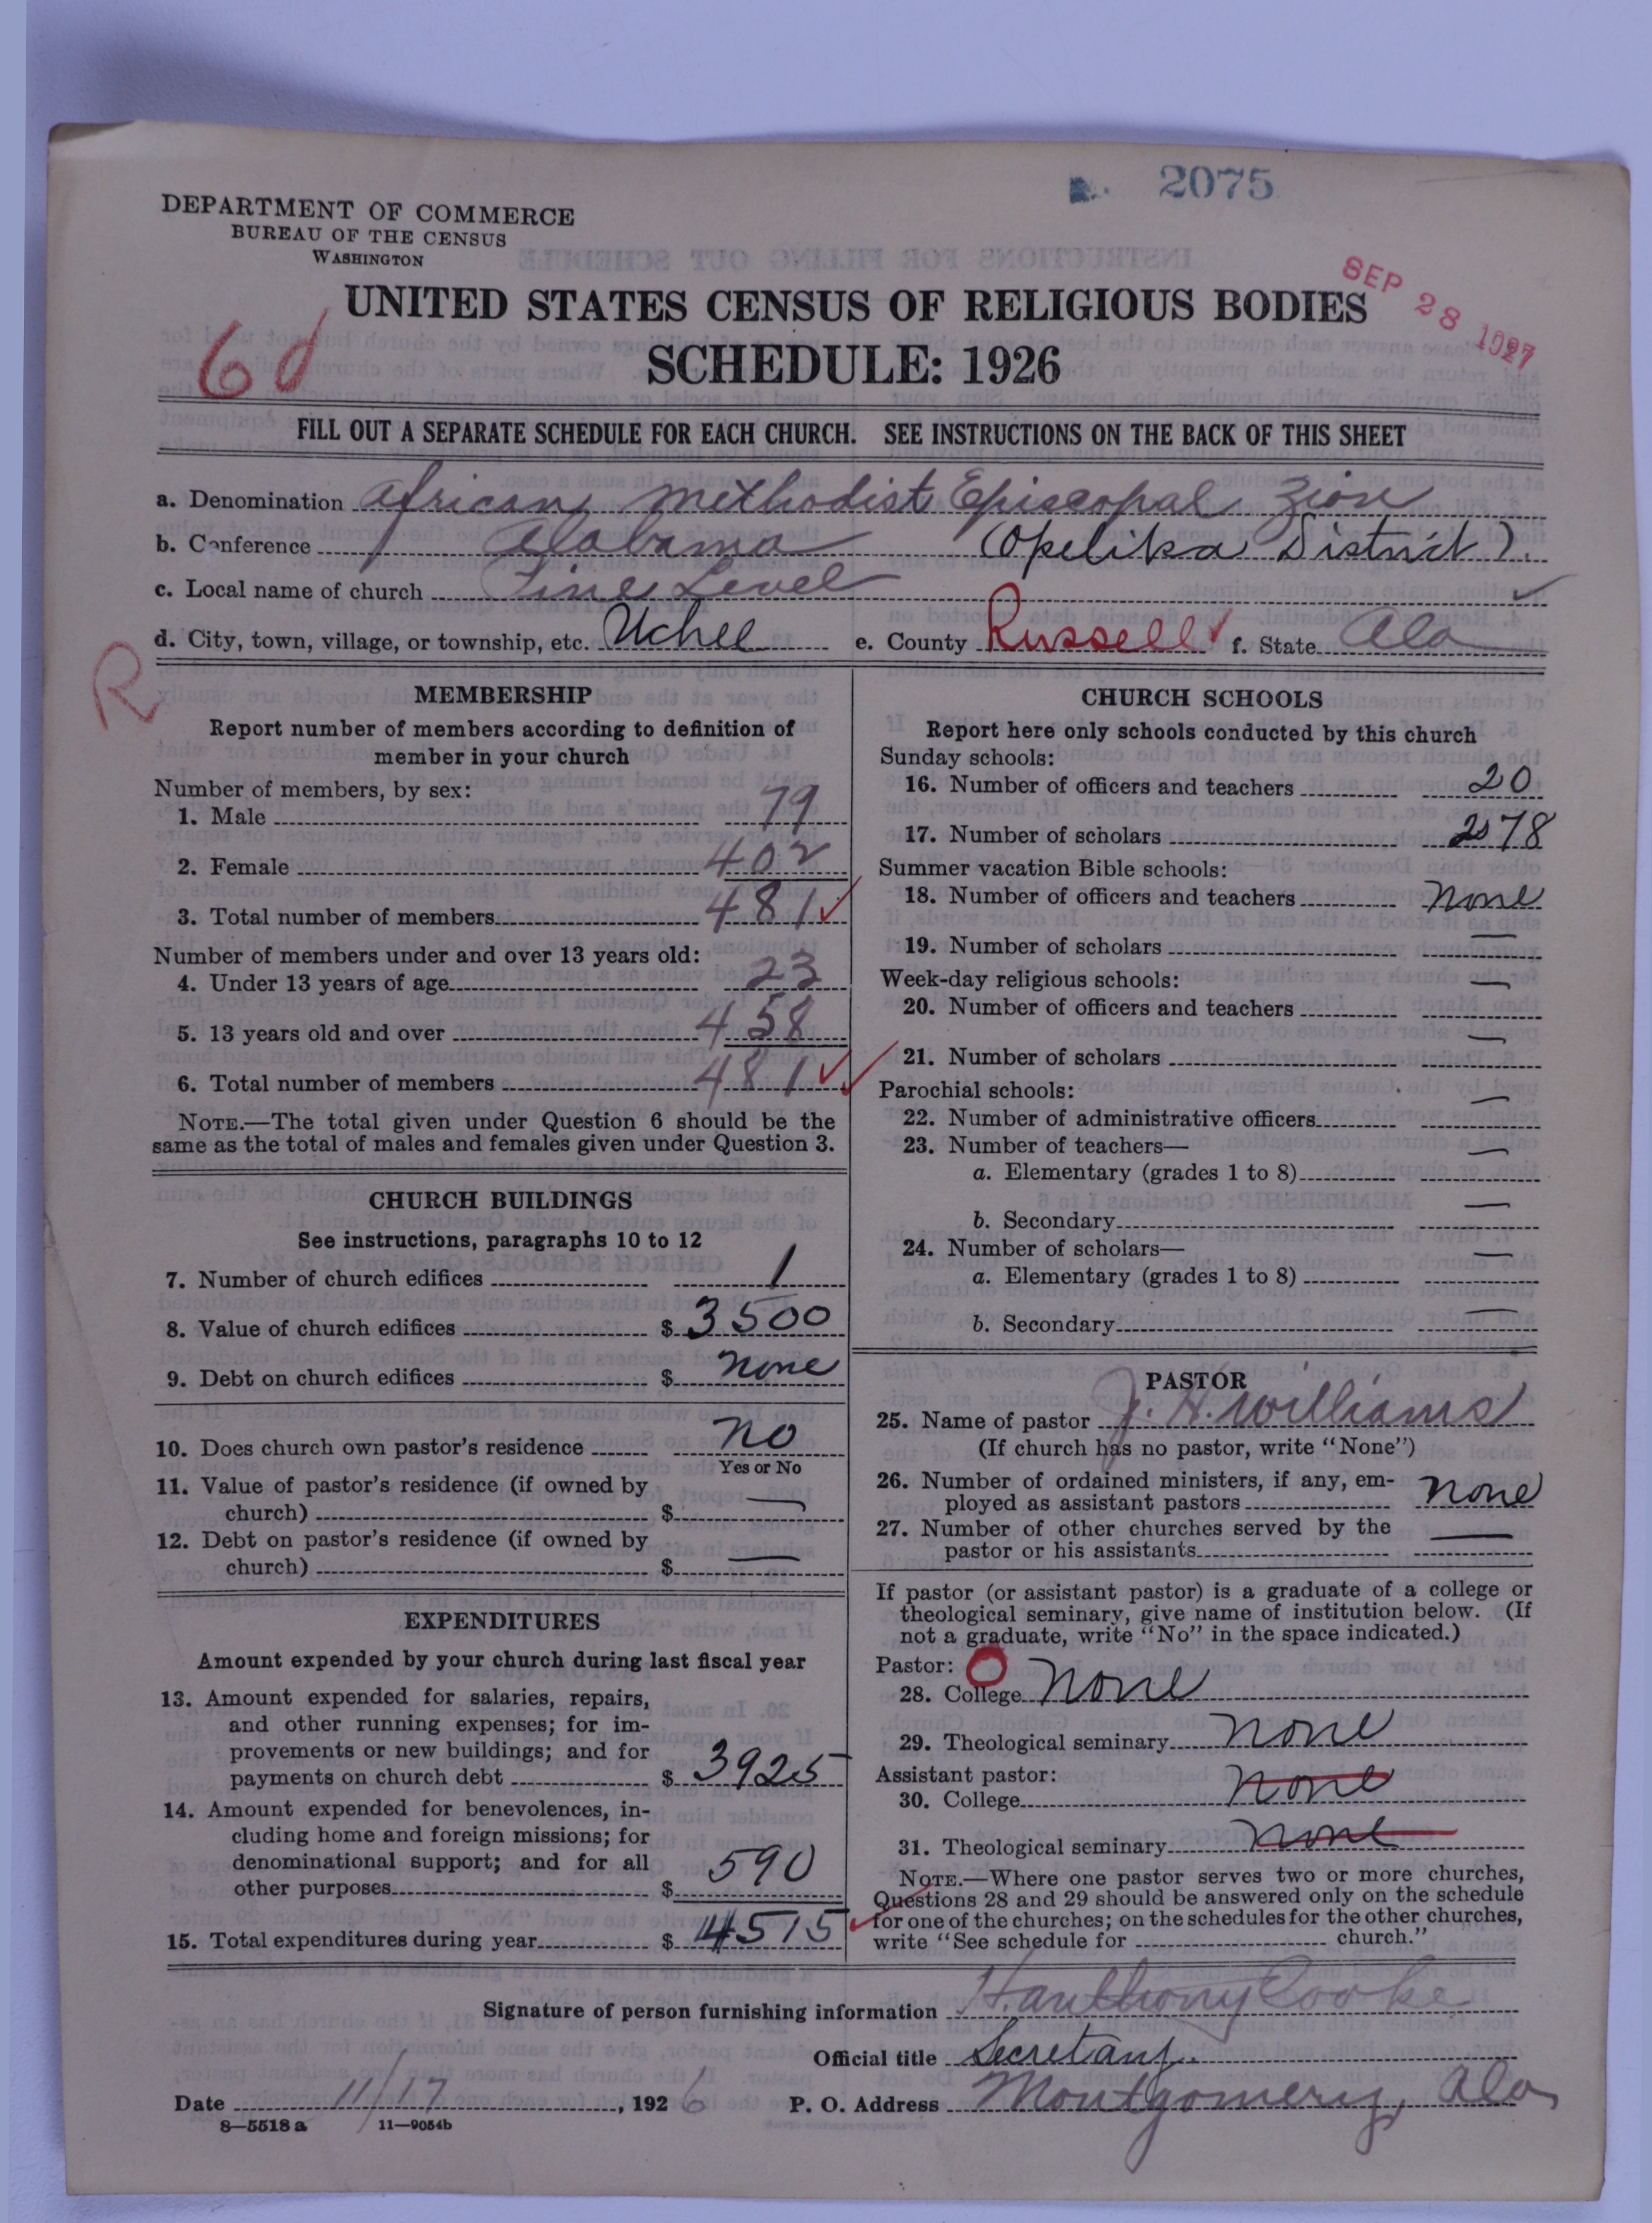 2075
DEPARTMENT OF COMMERCE
BUREAU OF THE CENSUS
WASHINGTON
SEP 28 1927
UNITED STATES CENSUS OF RELIGIOUS BODIES
SCHEDULE: 1926
60
FILL OUT A SEPARATE SCHEDULE FOR EACH CHURCH. SEE INSTRUCTIONS ON THE BACK OF THIS SHEET
a. Denomination African Methodist Episcopal Zion
b. Conference Alabama (Opelika District).
c. Local name of church Pine Level
d. City, town, village, or township, etc. Uchee e. County Russell f. State Ala
R
MEMBERSHIP
Report number of members according to definition of
member in your church
Number of members, by sex:
1. Male 79
2. Female 402
3. Total number of members 481
Number of members under and over 13 years old:
4. Under 13 years of age 23
5. 13 years old and over 458
6. Total number of members 481
NOTE.—The total given under Question 6 should be the
same as the total of males and females given under Question 3.
CHURCH BUILDINGS
See instructions, paragraphs 10 to 12
7. Number of church edifices 1
8. Value of church edifices $ 3500
9. Debt on church edifices $ none
10. Does church own pastor's residence No
Yes or No
11. Value of pastor's residence (if owned by
church) $ —
12. Debt on pastor's residence (if owned by
church) $ —
EXPENDITURES
Amount expended by your church during last fiscal year
13. Amount expended for salaries, repairs,
and other running expenses; for im-
provements or new buildings; and for
payments on church debt $ 3925
14. Amount expended for benevolences, in-
cluding home and foreign missions; for
denominational support; and for all
other purposes $ 590
15. Total expenditures during year $ 4515
CHURCH SCHOOLS
Report here only schools conducted by this church
Sunday schools:
16. Number of officers and teachers 20
17. Number of scholars 278
Summer vacation Bible schools:
18. Number of officers and teachers none
19. Number of scholars —
Week-day religious schools:
20. Number of officers and teachers —
21. Number of scholars —
Parochial schools:
22. Number of administrative officers —
23. Number of teachers—
a. Elementary (grades 1 to 8) —
b. Secondary —
24. Number of scholars—
a. Elementary (grades 1 to 8) —
b. Secondary —
PASTOR
25. Name of pastor J. H. Williams
(If church has no pastor, write "None")
26. Number of ordained ministers, if any, em-
ployed as assistant pastors none
27. Number of other churches served by the
pastor or his assistants —
If pastor (or assistant pastor) is a graduate of a college or
theological seminary, give name of institution below. (If
not a graduate, write "No" in the space indicated.)
Pastor: O
28. College none
29. Theological seminary none
Assistant pastor:
30. College none
31. Theological seminary none
NOTE.—Where one pastor serves two or more churches,
Questions 28 and 29 should be answered only on the schedule
for one of the churches; on the schedules for the other churches,
write "See schedule for church."
Signature of person furnishing information H. Anthony Cooke
Official title Secretary.
Date 11/17, 1926 P. O. Address Montgomery, Ala
8—5518 a 11—9054b